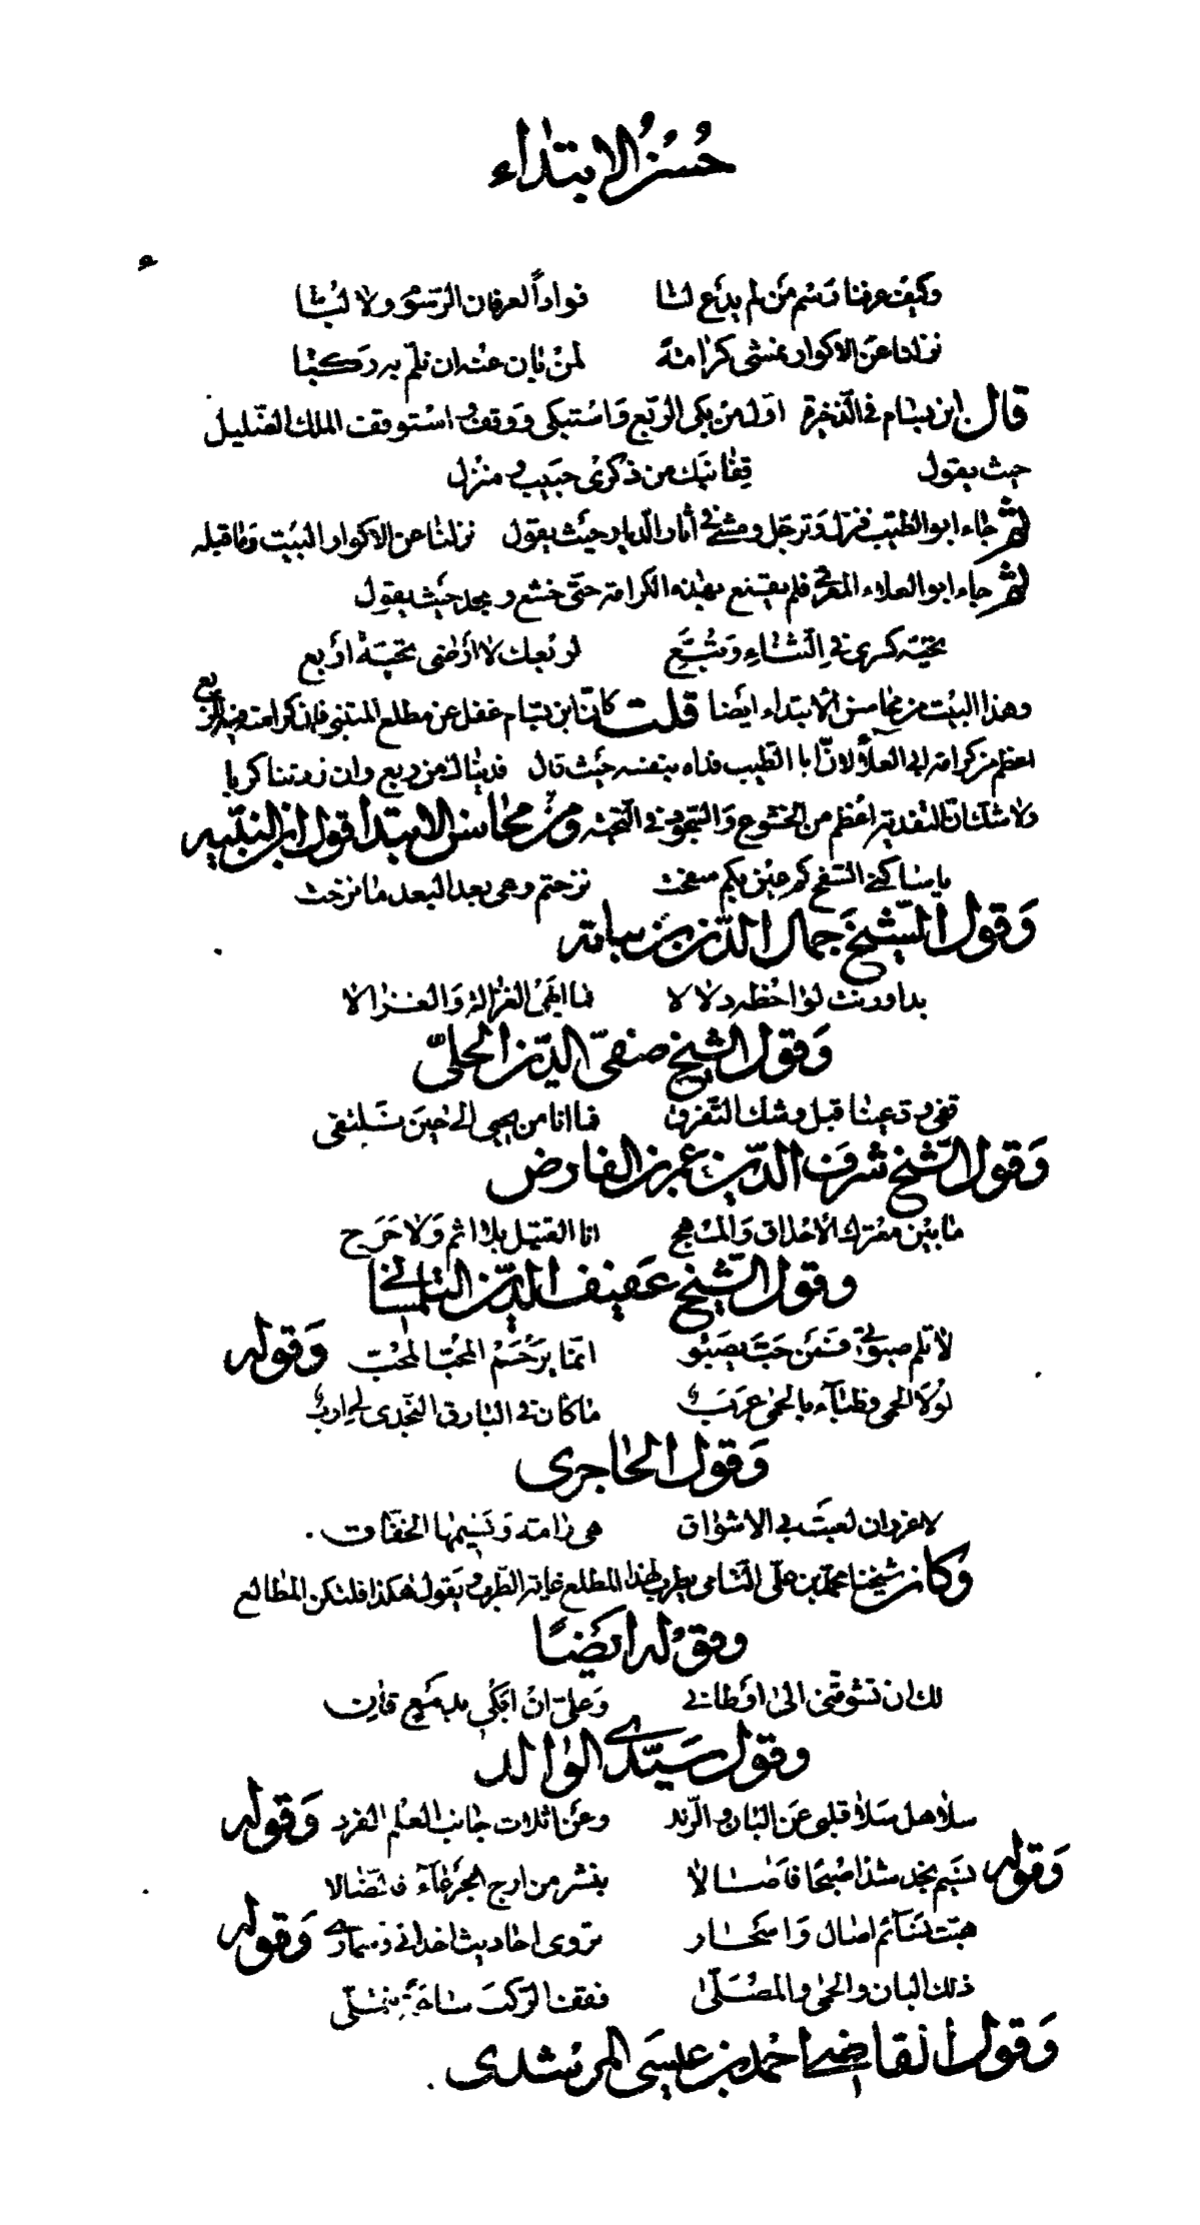 حُسْنُ الابتداء
وكيف عرفنا رسم من لم يدع لنا فؤاداً لعرفان الرسوم ولا لبّا
نزلنا عن الاكوار نمشى كرامة لمن بان عنه ان نلمّ به ركبا
قال ابن بسام فى الذّخيرة اوّل من بكى الربع واستبكى ووقف واستوقف الملك الضّليل
حيث يقول قفا نبك من ذكرى حبيب ومنزل
ثم جاء ابو الطيّب فنزل وترجّل ومشى فى آثار الدّيار حيث يقول نزلنا عن الاكوار البيت وما قبله
ثم جاء ابو العلاء المعرى فلم يقتنع بهذه الكرامة حتّى خشع وسجد حيث يقول
تحيّة كسرى فى الثّناء وتبّع لربعك لا أرضى تحيّة أربع
وهذا البيت من محاسن الابتداء ايضا قلت كانّ ابن بسّام غفل عن مطلع المتنبى فان كرامته فيه للربع
اعظم من كرامة ابى العلاء لانّ ابا الطّيب فداه بنفسه حيث قال فديناك من ربع وان زدتنا كربا
ولا شك ان التفدية اعظم من الخشوع والسّجود فى التّحيّة ومن محاسن الابتدا قول ابن النّبيه
يا ساكنى السّفح كم عين بكم سفحت نزحتم وهى بعد البعد ما نزحت
وقول الشّيخ جمال الدّين بن نباته
بدا ورنت لواحظه دلالا فما ابهى الغزالة والغزالا
وقول الشّيخ صفىّ الدّين الحلىّ
قفى ودّعينا قبل وشك التّفرق فما انا من يحيى الى حين نلتقى
وقول الشّيخ شرف الدّين عمر بن الفارض
ما بين معترك الاحداق والمهج انا القتيل بلا اثم ولا حرج
وقول الشّيخ عفيف الدّين التلمسانى
لا تلم صبوتى فمن حبّ يصبو انّما يرحم المحبّ المحبّ وقوله
لولا الحمى وظباء بالحمى عرب ما كان فى البارق النّجدى لى ارب
وقول الحاجرى
لا غرو ان لعبت بى الاشواق هى رامة ونسيمها الخفّاق
وكان شيخنا محمّد بن علىّ الشّامى يطرب لهذا المطلع غاية الطّرب ويقول هكذا فلتكن المطالع
وقوله ايضًا
لك ان تشوّقنى الى اوطانى وعلىّ ان ابكى بدمع قان
وقول سيّدى الوالد
سلا هل سلا قلبى عن البان والرّند وعن اثلات جانب العلم الفرد وقوله
وقوله نسيم نجد شذا صبحا فاصالا بنشر من ارج الجرعاء فالضّالا
هبّت نسائم اصال واسحار تروى احاديث اخدانى وسمارى وقوله
ذلك البان والحمى والمصلّى فقف الركب ساعة نتملّى
وقول القاضى احمد بن عيسى المرشدى